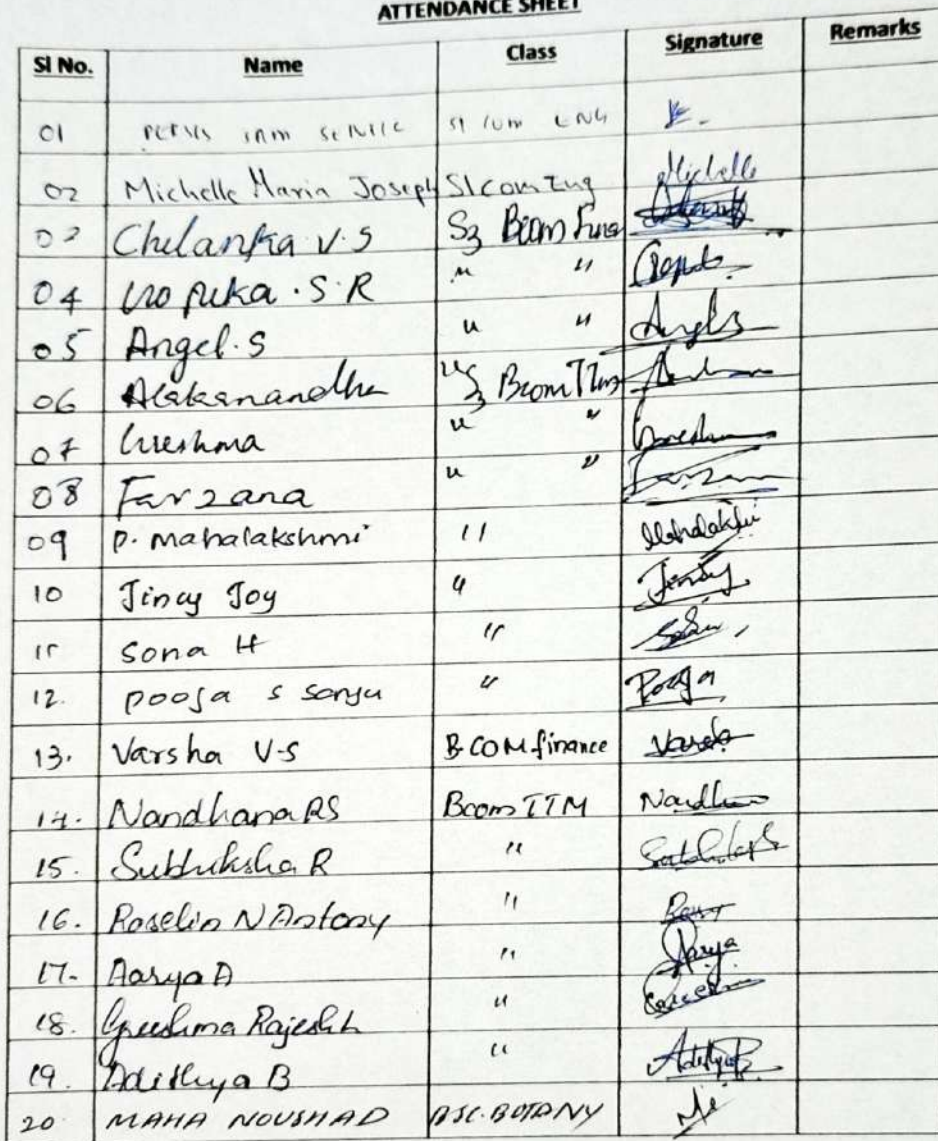 ATTENDANCE SHEET
Sl No. Name Class Signature Remarks
01 S1 COM ENG
02 Michelle Maria Joseph S1 Com Eng Michelle
03 Chelanka V.S S3 Bcom
04 Gopika . S. R " "
05 Angel. S " " Angel S
06 Alakanandha S3 Bcom TTM
07 Greshma " "
08 Farzana " " Farzana
09 P. Mahalakshmi " Mahalakshmi
10 Jincy Joy " Jincy
11 Sona H "
12. Pooja S Sanju " Pooja
13. Varsha V-S B.COM finance Varsha
14. Nandhana RS Bcom TTM
15. Subhiksha R "
16. Roselin N Antony "
17. Aarya A " Aarya
18. Greeshma Rajesh "
19. Adithya B " Adithya B
20 MAHA NOUSHAD BSC. BOTANY